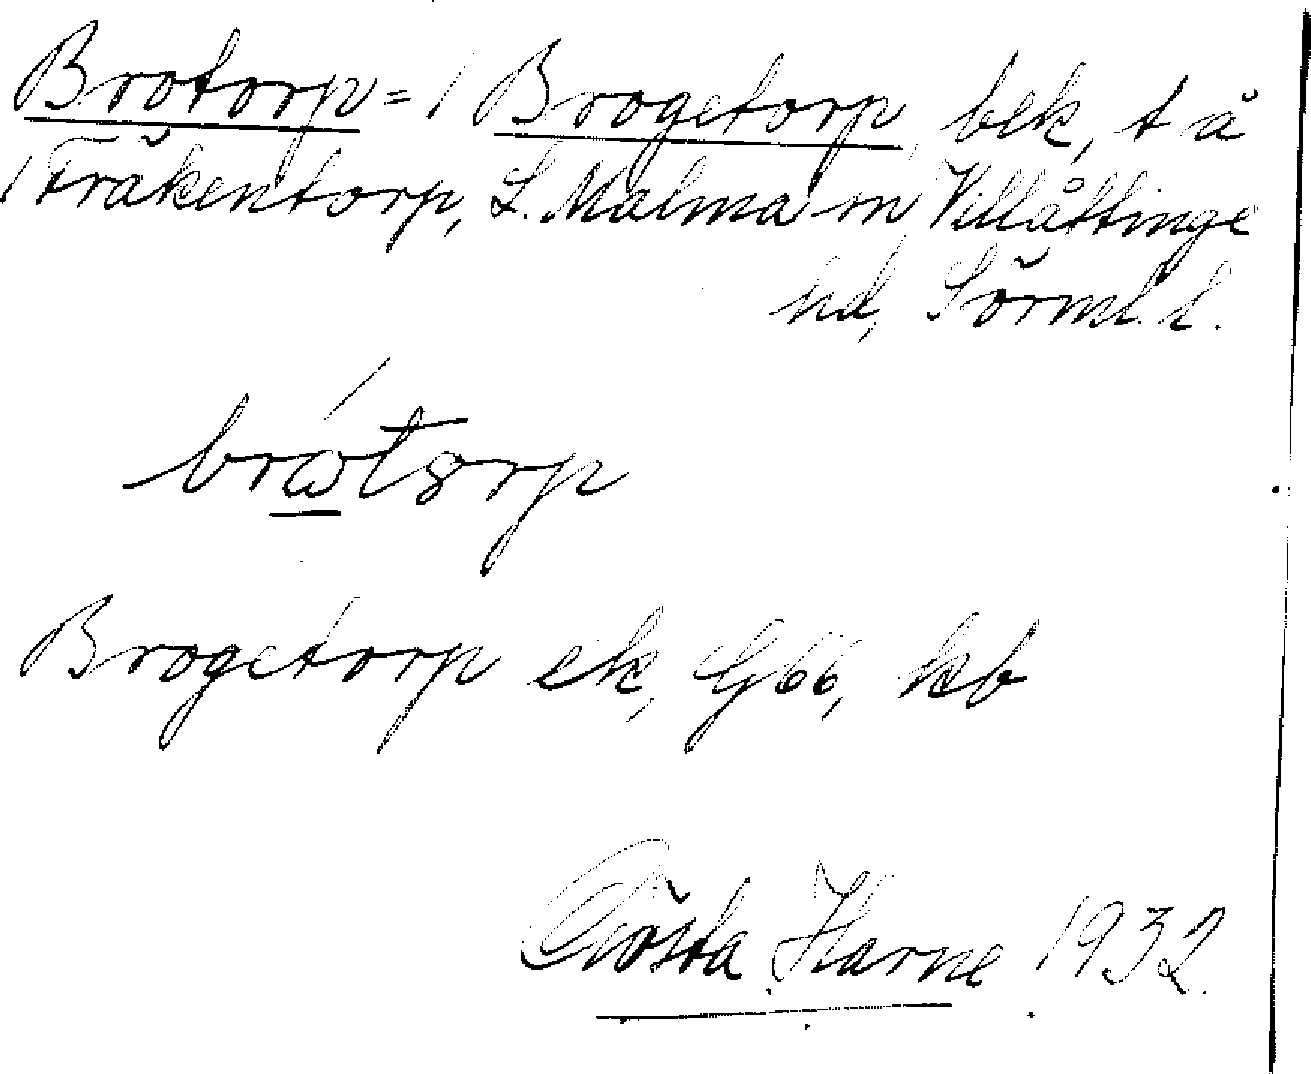 Brotorp = / Brogetorp, bek, t å
/ Fräkentorp, L. Malma sn, Villåttinge
hd, Sörml. l.
brωtərp
Brogetorp ek, G66, kb
Gösta Harne 1932.